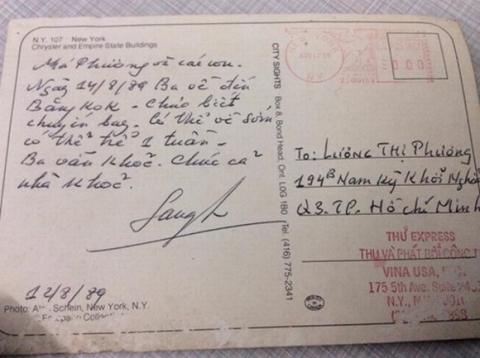 N.Y. 107 New York
Chrysler and Empire State Buildings
Má Phương và các con.
Ngày 14/8/89 Ba về đến
Băng KoK - Chưa biết
chuyến bay. Có thể về sớm
có thể trể 1 tuần -
Ba vẫn khoẻ. Chúc cả
nhà khoẻ.
12/8/89
Photo: Schein, New York, N.Y.
CITY SIGHTS Box 8, Bond Head, Ont. L0G 1B0 Tel. (416) 775-2341
To: LƯƠNG THỊ PHƯƠNG
194B Nam Kỳ Khởi Nghĩa
Q3. TP. Hồ Chí Minh
THƯ EXPRESS
THU VÀ PHÁT BỞI
VINA USA,
175 5th Ave. Suite
N.Y.,